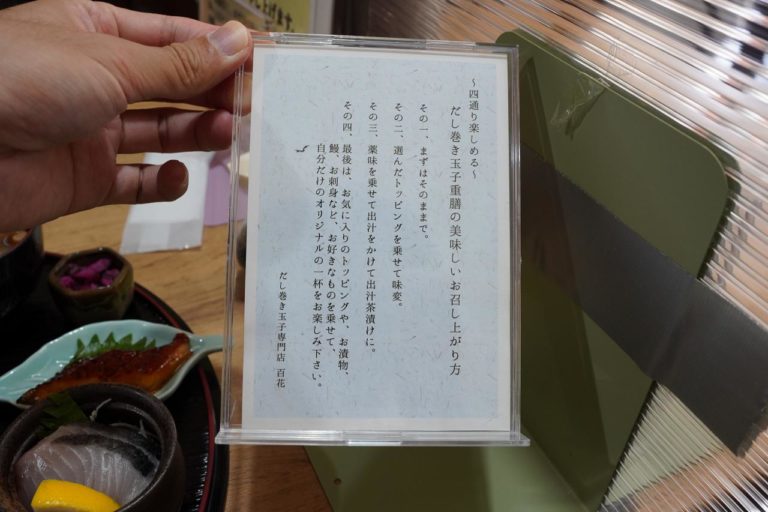 〜四通り楽しめる〜
だし巻き玉子重膳の美味しいお召し上がり方
その一、まずはそのままで。
その二、選んだトッピングを乗せて味変。
その三、薬味を乗せて出汁をかけて出汁茶漬けに。
その四、最後は、お気に入りのトッピングや、お漬物、
鰻、お刺身など、お好きなものを乗せて、
自分だけのオリジナルの一杯をお楽しみ下さい。
だし巻き玉子専門店 百花